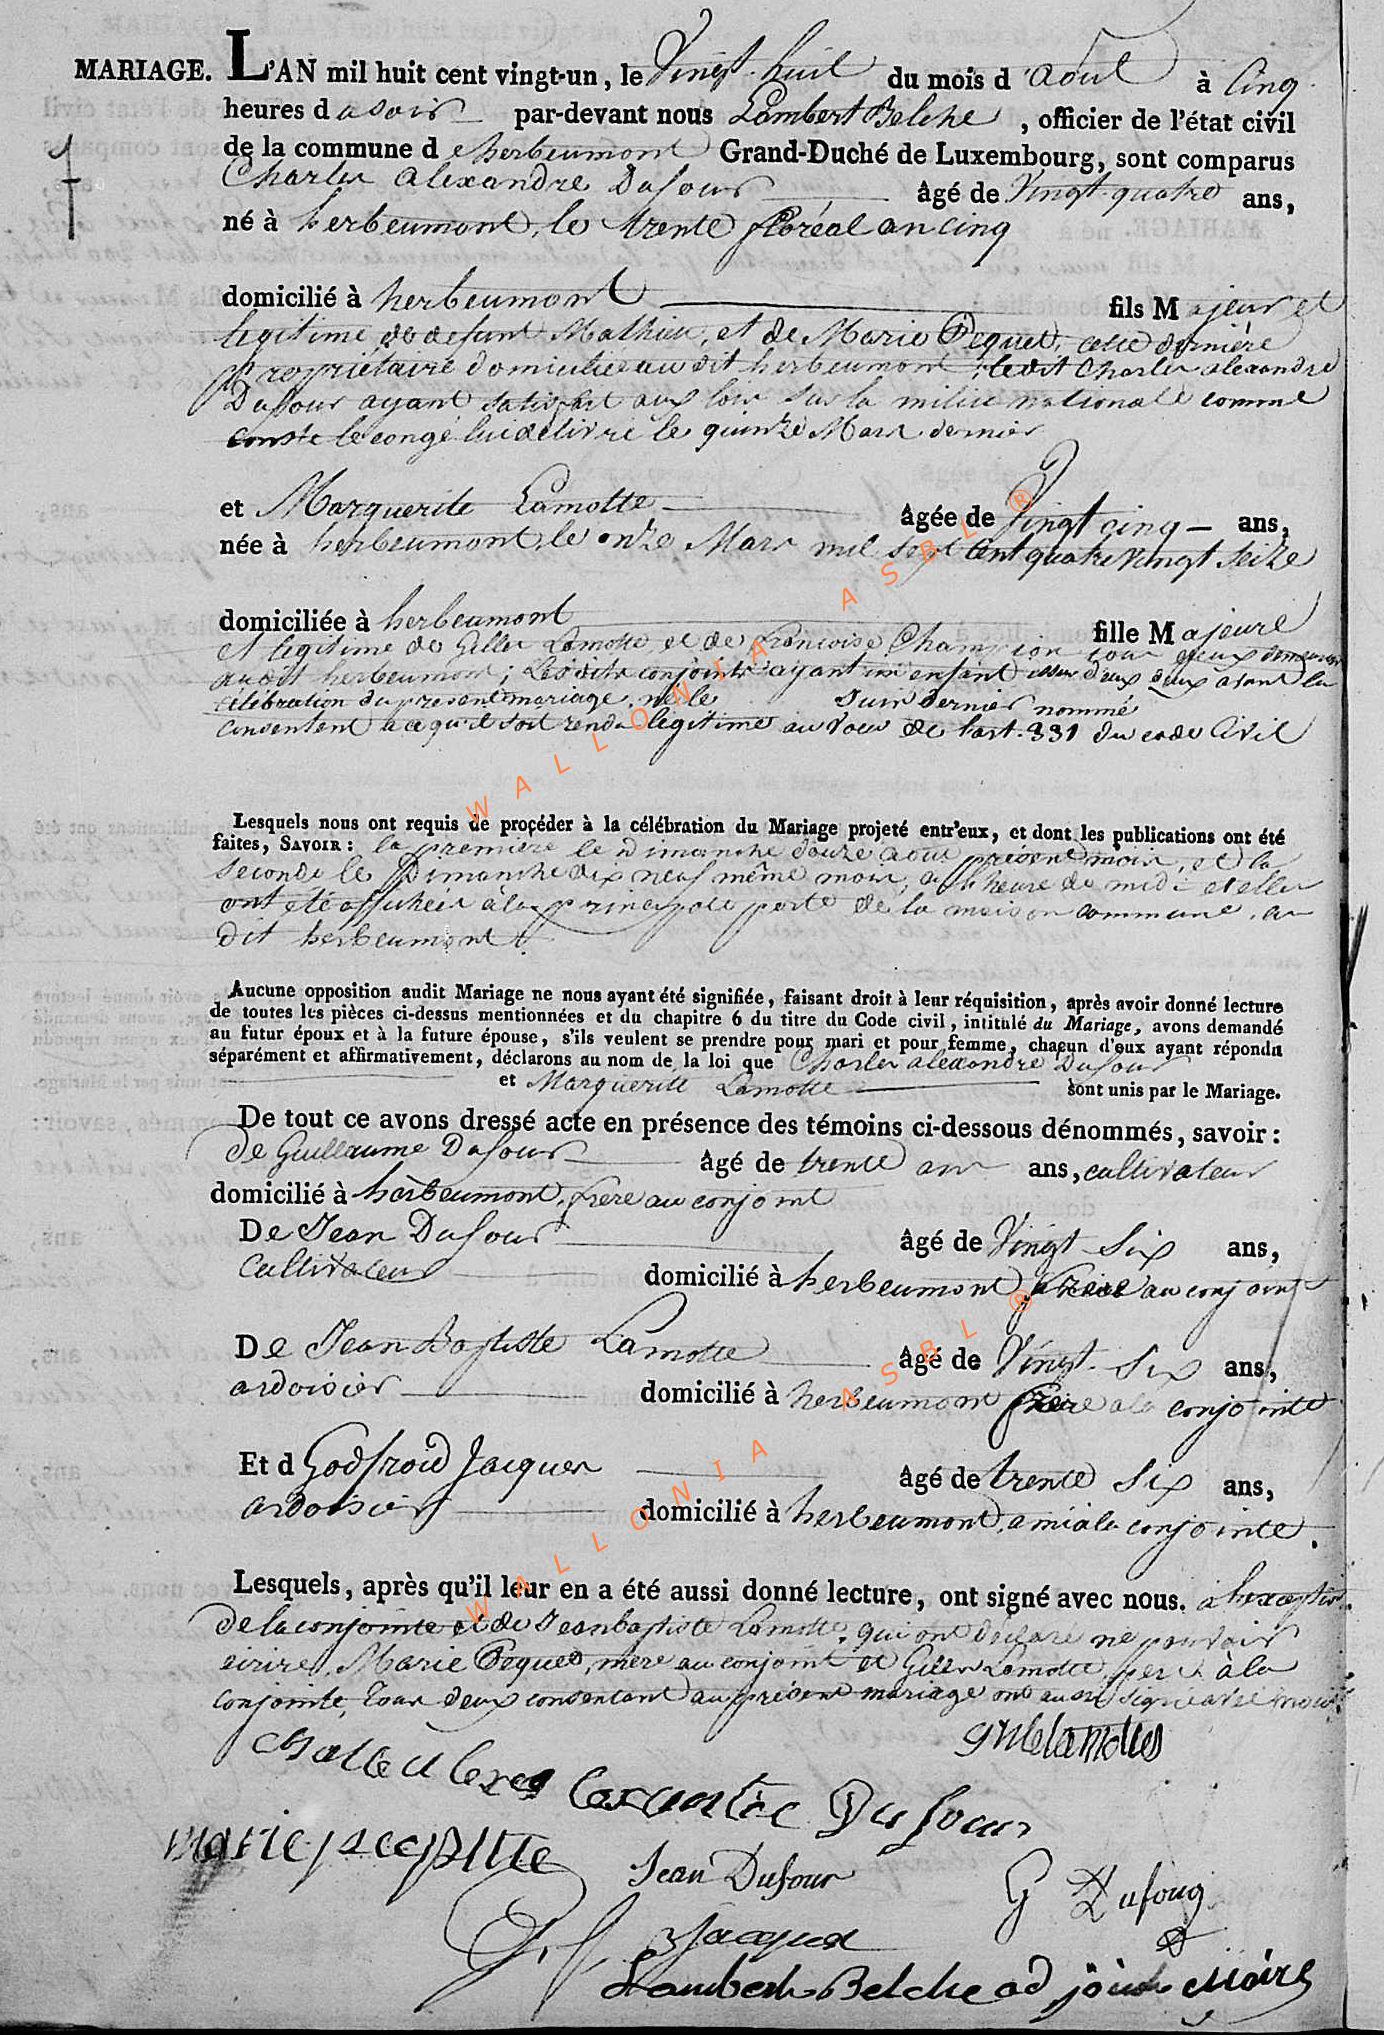 MARIAGE. L'AN mil huit cent vingt-un, le Vingt huit du mois d'aout à Cinq
heures d u soir par-devant nous Lambert Belche, officier de l'état civil
de la commune d e herbeumont Grand-Duché de Luxembourg, sont comparus
Charles alexandre Dufour âgé de Vingt-quatre ans,
né à herbeumont, le trente floréal an cinq
domicilié à herbeumont fils M ajeur et
legitime de defunt Mathieu, et de Marie Pequet, cette dernière
propriétaire domiciliée au dit herbeumont; ledit Charles alexandre
Dufour ayant satisfait aux lois sur la milice nationale comme
conste le congé lui délivré le quinze Mars dernier
et Marguerite Lamotte âgée de Vingt cinq ans,
née à herbeumont, le onze Mars mil sept cent quatre vingt seize
domiciliée à herbeumont fille M ajeure
et legitime de Gilles Lamotte et de Francoise Champion tous deux demeurant
audit herbeumont; Lesdits conjoints ayant un enfant issu d'eux deux avant la
célébration du present mariage, né le juin dernier nommé
consentent a ce qu'il soit rendu légitime au voeu de l'art. 331 du code Civil
Lesquels nous ont requis de procéder à la célébration du Mariage projeté entr'eux, et dont les publications ont été
faites, SAVOIR : la première le Dimanche douze aout présent mois, et la
seconde le Dimanche dix neuf même mois, a l'heure de midi et elles
ont été affichées à la principale porte de la maison commune, au
dit herbeumont.
Aucune opposition audit Mariage ne nous ayant été signifiée, faisant droit à leur réquisition, après avoir donné lecture
de toutes les pièces ci-dessus mentionnées et du chapitre 6 du titre du Code civil, intitulé du Mariage, avons demandé
au futur époux et à la future épouse, s'ils veulent se prendre pour mari et pour femme, chacun d'eux ayant répondu
séparément et affirmativement, déclarons au nom de la loi que Charles alexandre Dufour
et Marguerite Lamotte sont unis par le Mariage.
De tout ce avons dressé acte en présence des témoins ci-dessous dénommés, savoir :
de Guillaume Dufour âgé de trente an ans, cultivateur
domicilié à herbeumont, frere au conjoint
De Jean Dufour âgé de Vingt six ans,
Cultivateur domicilié à herbeumont frere au conjoint
De Jean Baptiste Lamotte âgé de Vingt six ans,
ardoisier domicilié à herbeumont frere a la conjointe
Et d Godfroid Jacques âgé de trente six ans,
ardoisier domicilié à herbeumont, ami a la conjointe.
Lesquels, après qu'il leur en a été aussi donné lecture, ont signé avec nous. a l'exception
de la conjointe et de Jean baptiste Lamotte, qui ont déclaré ne pouvoir
écrire. Marie Pequet, mère au conjoint et Gilles Lamotte, père à la
conjointe, tous deux consentant au présent mariage ont aussi signé avec nous.
Marie
Dufour
Jean Dufour
G Dufour
Jacques
Lambert Belche adjoint Maire
WALLONIA ASBL ®
WALLONIA ASBL ®